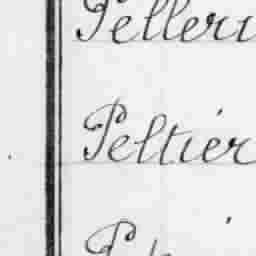 Pelleri
Peltier